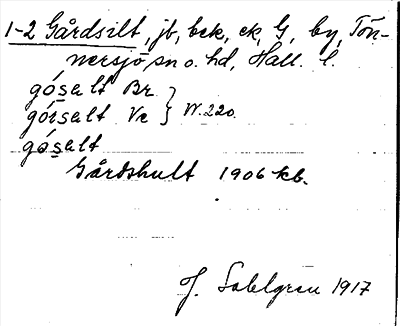 1-2 Gårdsilt, jb, bek, ek, G, by, Tön-
nersjö sn o. hd, Hall. l.
gósalt Br } W. 220.
góisalt Ve
gósalt
Gårdshult 1906 kb.
J. Sahlgren 1917